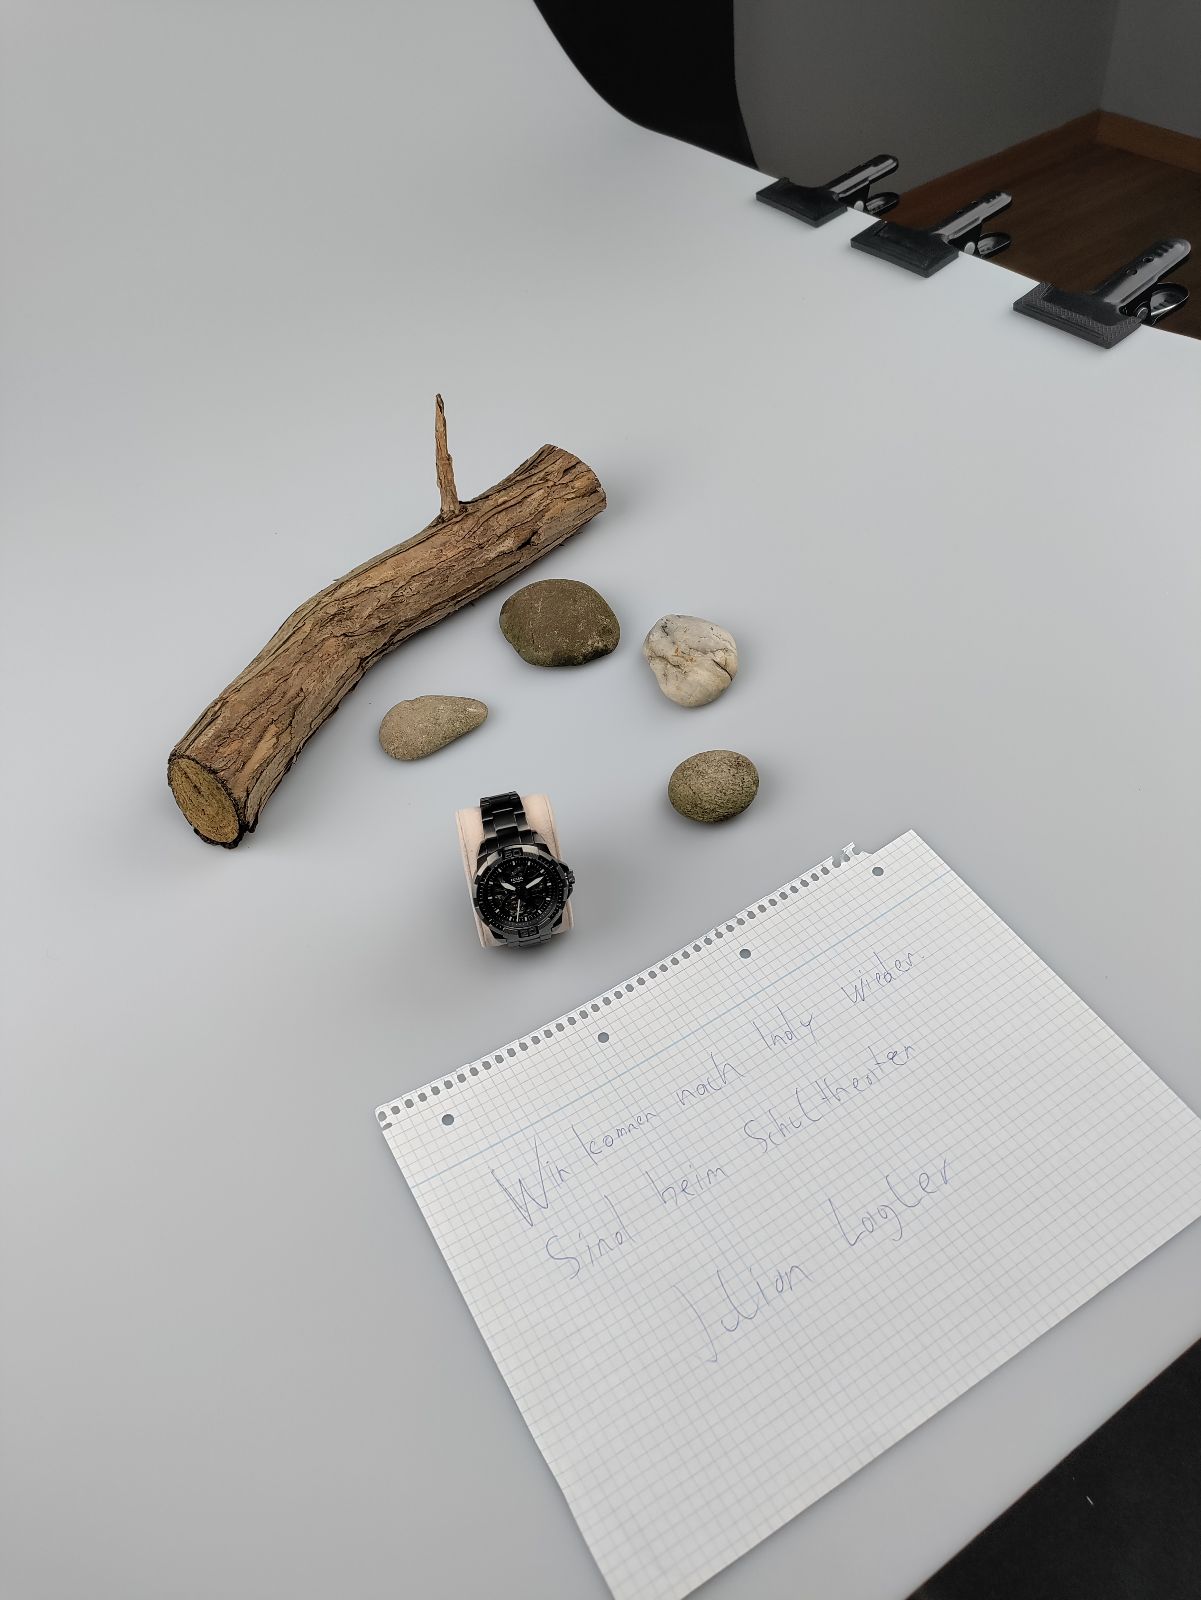 Wir kommen nach Indy wieder.
Sind beim Schultheaten
Julian Lagler